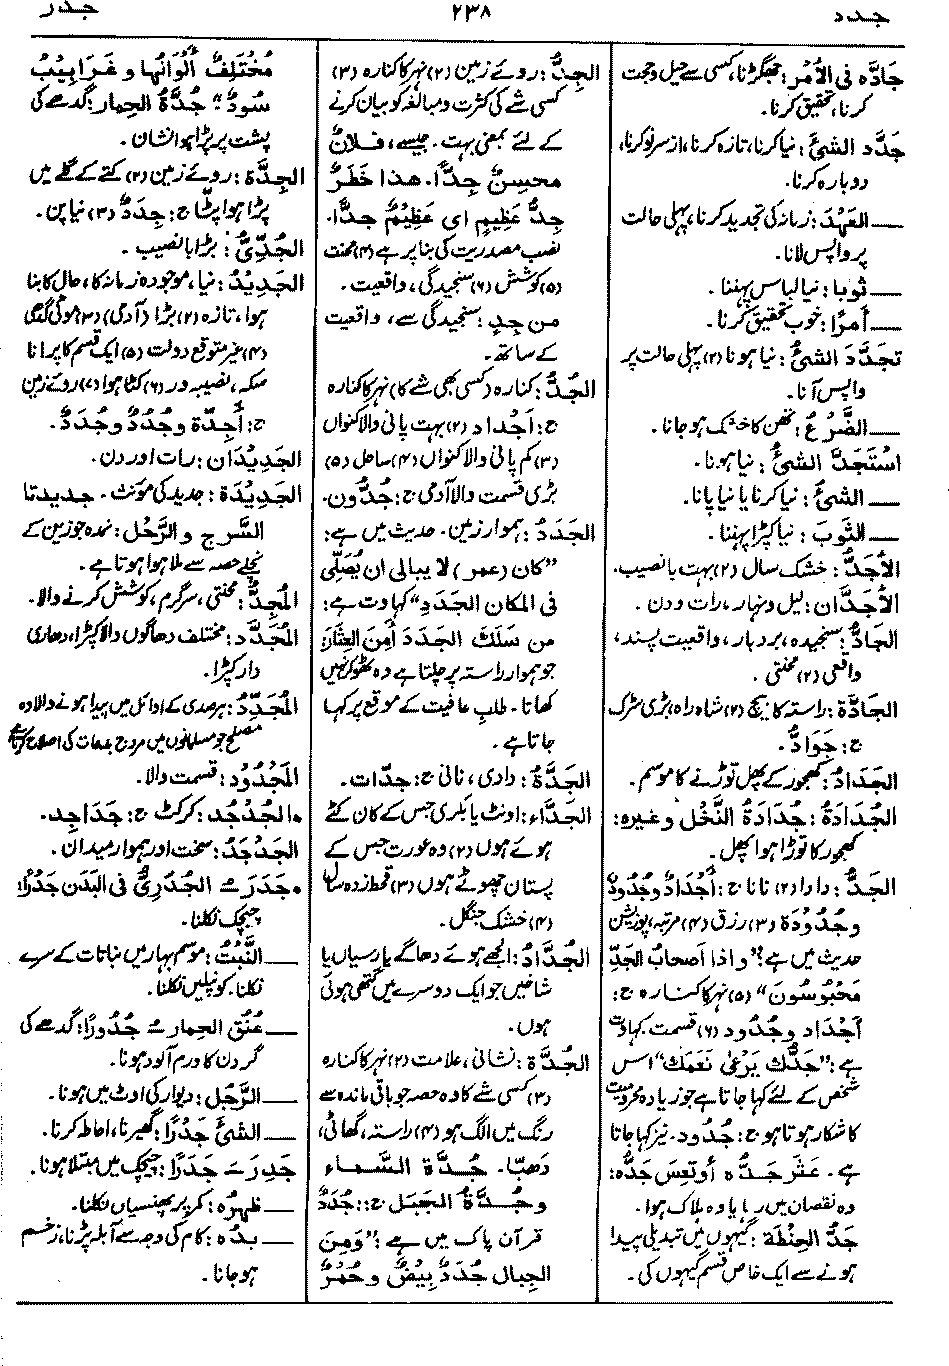 جدد
۲۳۸
جدر
جَادَّه فی الأمْر: جھگڑنا، کسی سے حیل وحجت
کرنا، تحقیق کرنا۔
جَدَّد الشیَٔ: نیا کرنا، تازہ کرنا، از سرِ نو کرنا،
دوبارہ کرنا۔
— العَهْدَ: زمانہ کی تجدید کرنا، پہلی حالت
پر واپس لانا۔
— ثوبا: نیا لباس پہننا۔
— أمرًا: خوب تحقیق کرنا۔
تجدَّدَ الشیُٔ: نیا ہونا (۲) پہلی حالت پر
واپس آنا۔
— الضَّرْعُ: تھن کا خشک ہو جانا۔
اسْتَجَدَّ الشیُٔ: نیا ہونا۔
— الشیَٔ: نیا کرنا یا نیا پانا۔
— الثَّوبَ: نیا کپڑا پہننا۔
الأجَدُّ: خشک سال (۲) بہت با نصیب۔
الأجَدَّان: لیل ونہار، رات و دن۔
الجَادُّ: سنجیدہ، بردبار، واقعیت پسند،
واقعی (۲) محنتی۔
الجادَّة: راستہ کا بیچ (۲) شاہ راہ، بڑی سڑک
ج: جَوَادُّ۔
الجَدَادُ: کھجور کے پھل توڑنے کا موسم۔
الجُدَادَةُ: جُدَادَةُ النَّخْل وغیره:
کھجور کا توڑا ہوا پھل۔
الجَدُّ: دادا (۲) نانا ج: أجْدَادٌ وجُدُودٌ
وجُدُودَة (۳) رزق (۴) مرتبہ، پوزیشن
حدیث میں ہے: ”واذا أصحابُ الجَدِّ
مَحْبُوسُونَ“ (۵) نہر کا کنارہ ج:
أجْدَاد وجُدُود (۶) قسمت۔ کہاوت
ہے: ”جَدُّكَ یَرْعٰی نَعَمَكَ“ اس
شخص کے لئے کہا جاتا ہے جو زیادہ محرومیت
کا شکار ہوتا ہو ج: جُدُود۔ نیز کہا جاتا
ہے۔ عَثَرَ جَدُّه أو تَعِسَ جَدُّه:
وہ نقصان میں رہا یا وہ ہلاک ہوا۔
جَدُّ الحِنْطَة: گیہوں میں تبدیلی پیدا
ہونے سے ایک خاص قسم گیہوں کی۔
الجِدُّ: روئے زمین (۲) نہر کا کنارہ (۳)
کسی شے کی کثرت ومبالغہ کو بیان کرنے
کے لئے بمعنی بہت۔ جیسے، فلانٌ
محسِنٌ جِدًّا۔ هذا خَطَرٌ
جِدُّ عَظِیمٍ ای عَظِیْمٌ جدًّا۔
نصب مصدریت کی بنا پر ہے (۴) محنت
(۵) کوشش (۶) سنجیدگی، واقعیت۔
من جِدٍ: سنجیدگی سے، واقعیت
کے ساتھ۔
الجُدُّ: کنارہ (کسی بھی شے کا) نہر کا کنارہ
ج: أجْدَاد (۲) بہت پانی والا کنواں
(۳) کم پانی والا کنواں (۴) ساحل (۵)
بڑی قسمت والا آدمی ج: جُدُّون۔
الجَدَدُ: ہموار زمین۔ حدیث میں ہے:
”کان (عمر) لا یبالی ان یُصَلِّی
فی المکان الجَدَدِ“ کہاوت ہے:
من سَلَكَ الجَدَدَ أمِنَ العِثَارَ
جو ہموار راستہ پر چلتا ہے وہ ٹھوکر نہیں
کھاتا۔ طلبِ عافیت کے موقع پر کہا
جاتا ہے۔
الجَدَّةُ: دادی، نانی ج: جدّات۔
الجَدَّاء: اونٹ یا بکری جس کے کان کٹے
ہوئے ہوں (۲) وہ عورت جس کے
پستان چھوٹے ہوں (۳) قحط زدہ سال
(۴) خشک جنگل۔
الجُدَّادُ: الجھے ہوئے دھاگے یا رسیاں یا
شاخیں جو ایک دوسرے میں گتھی ہوئی
ہوں۔
الجُدَّة: نشانی، علامت (۲) نہر کا کنارہ
(۳) کسی شے کا وہ حصہ جو باقی ماندہ سے
رنگ میں الگ ہو (۴) راستہ، گھاٹی،
دَھبّا۔ جُدَّةُ السَّماء
وجُدَّةُ الجَبَل ج: جُدَدٌ
قرآن پاک میں ہے: ”وَمِنَ
الجِبال جُدَدٌ بِیضٌ وحُمْرٌ
مُخْتَلِفٌ ألْوَانُها وغَرَابِیْبُ
سُودٌ“ جُدَّةُ الحِمار: گدھے کی
پشت پر پڑا ہوا نشان۔
الجِدَّة: روئے زمین (۲) کتے کے گلے میں
پڑا ہوا پٹا ج: جِدَدٌ (۳) نیاپن۔
الجُدِّیُّ: بڑا با نصیب۔
الجَدِیْدُ: نیا، موجودہ زمانہ کا، حال کا بنا
ہوا، تازہ (۲) بڑا (آدمی) (۳)
(۴) غیر متوقع دولت (۵) ایک قسم کا پرانا
سکہ، نصیبہ ور (۶) کٹا ہوا (۷) روئے زمین
ج: أجِدَّة وجُدُدٌ وجُدَدٌ۔
الجَدِیْدَان: رات اور دن۔
الجَدِیْدَة: جدید کی مؤنث۔ جدیدتا
السَّرْج والرَّحْل: نمدہ جو زین کے
نچلے حصہ سے ملا ہوا ہوتا ہے۔
المُجِدُّ: محنتی، سرگرم، کوشش کرنے والا۔
المُجَدَّد: مختلف دھاگوں والا کپڑا، دھاری
دار کپڑا۔
المُجَدِّدُ: ہر صدی کے اوائل میں پیدا ہونے والا وہ
مصلح جو مسلمانوں میں مروج بدعات کی اصلاح کرتا ہے
المَجْدُوْدُ: قسمت والا۔
• الجُدْجُد: کرکٹ ج: جَدَاجِد۔
الجَدْجَدُ: سخت اور ہموار میدان۔
• جَدَرَ ـُ الجُدَرِیُّ فی البَدَن جَدْرًا:
چیچک نکلنا۔
— النَّبْتُ: موسم بہار میں نباتات کے سرے
نکلنا۔ کونپلیں نکلنا۔
— عُنُقُ الحِمار ـُ جُدُورًا: گدھے کی
گردن کا ورم آلود ہونا۔
— الرَّجُل: دیوار کی اوٹ میں ہونا۔
— الشیَٔ جَدْرًا: گھیرنا، احاطہ کرنا۔
جَدِرَ ـَ جَدَرًا: چیچک میں مبتلا ہونا۔
— ظهرُه: کمر پر پھنسیاں نکلنا۔
— یدُه: کام کی وجہ سے آبلہ پڑنا، زخم
ہو جانا۔